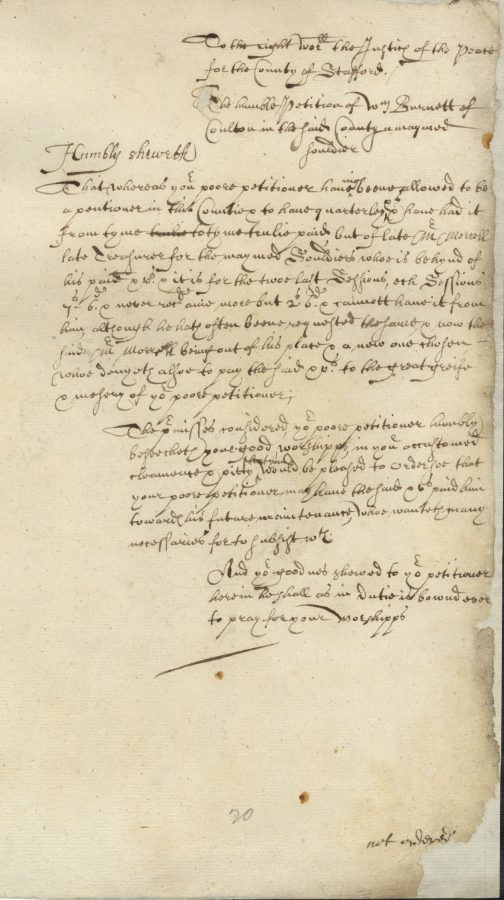 To the right wor:ll the Justices of the Peace
for the County of Stafford.
The humble Petition of Wm Burnett of
Coulton in the said County a maymed
souldier
Humbly sheweth
That whereas yor poore petitioner haveing beene allowed to be
a pentioner in this Countie & to have quarterley & have had it
from tyme trulie to tyme trulie paid but of late Mr Morrell
late Treasurer for the maymed Souldiers whoe is behynd of
his paid xvs & it is for the twoe last Sessions, ech Sessions
7s 6d & never recd anie more but 2s 6d & cannott have it from
him although he hath often beene requested the same & now the
said Mr Morrell being out of his place & a new one chosen
whoe denyeth alsoe to pay the said xvs to the great greife
& misery of yor poore petitioner;
The premisses considered yor poore petitioner humbly
beseecheth your good worshipps in your accustomed
clemencie & pitty that you would be pleased to order soe that
your poore petitioner may have the said xvs paid him
towards his future maintenance, whoe wanteth many
necessaries for to subsist wth
And yor goodnes shewed to yor petitioner
herein he shall as in dutie is bownd ever
to pray for your worshipps
20
not ordered